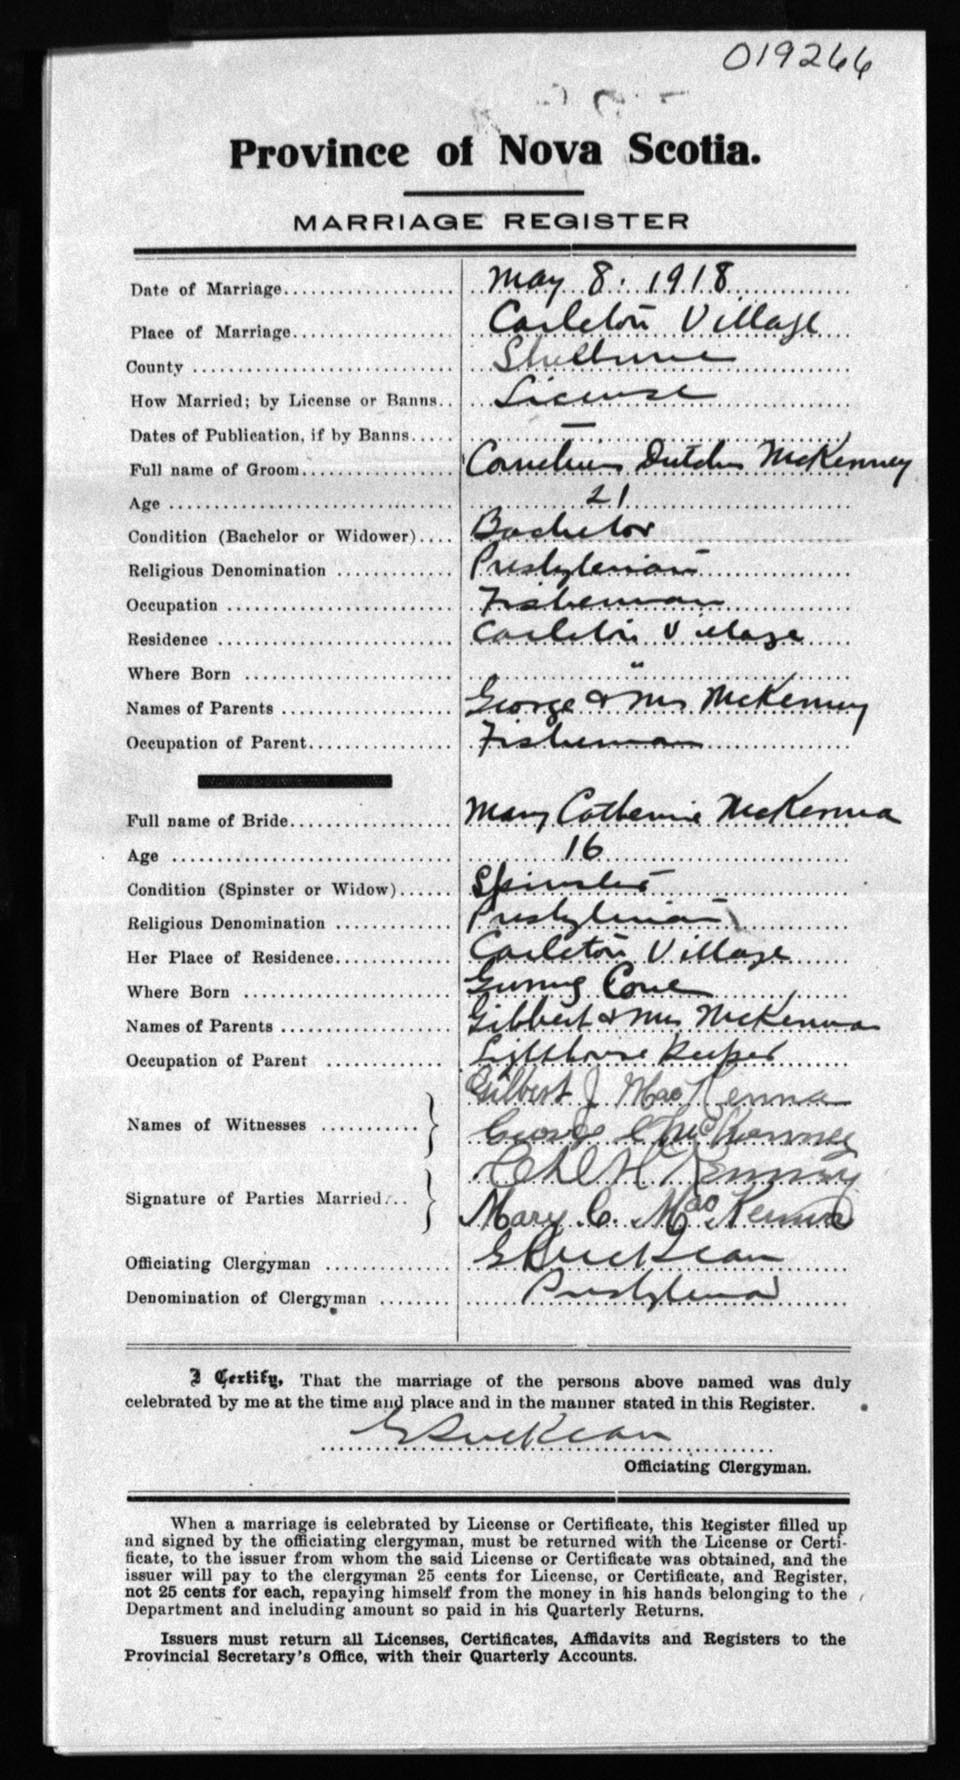 019266
Province of Nova Scotia.
MARRIAGE REGISTER
Date of Marriage May 8. 1918
Place of Marriage Carleton Village
County Shelburne
How Married; by License or Banns License
Dates of Publication, if by Banns —
Full name of Groom Cornelius McKenney
Age 21
Condition (Bachelor or Widower) Bachelor
Religious Denomination Presbyterian
Occupation Fisherman
Residence Carleton Village
Where Born "
Names of Parents George & Mrs McKenney
Occupation of Parent Fisherman
Full name of Bride Mary Catherine McKenna
Age 16
Condition (Spinster or Widow) Spinster
Religious Denomination Presbyterian
Her Place of Residence Carleton Village
Where Born Gunning Cove
Names of Parents Gilbert & Mrs McKenna
Occupation of Parent Lighthouse Keeper
Names of Witnesses Gilbert J MacKenna
George C McKenney
Signature of Parties Married
Mary C. MacKenna
Officiating Clergyman
Denomination of Clergyman Presbyterian
I Certify, That the marriage of the persons above named was duly
celebrated by me at the time and place and in the manner stated in this Register.
Officiating Clergyman.
When a marriage is celebrated by License or Certificate, this Register filled up
and signed by the officiating clergyman, must be returned with the License or Certi-
ficate, to the issuer from whom the said License or Certificate was obtained, and the
issuer will pay to the clergyman 25 cents for License, or Certificate, and Register,
not 25 cents for each, repaying himself from the money in his hands belonging to the
Department and including amount so paid in his Quarterly Returns.
Issuers must return all Licenses, Certificates, Affidavits and Registers to the
Provincial Secretary's Office, with their Quarterly Accounts.